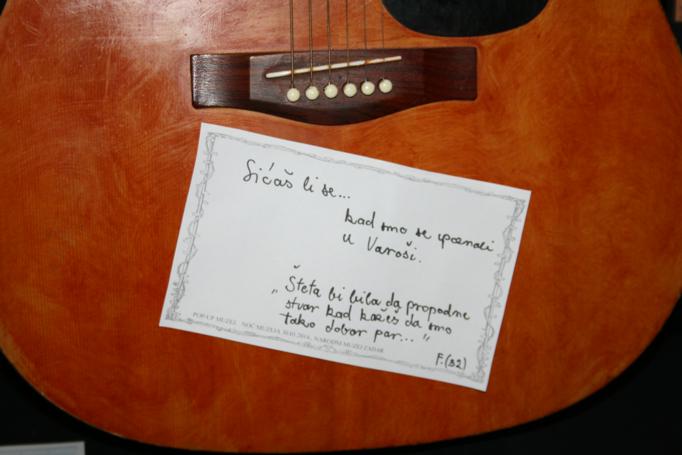 Sićaš li se...
kad smo se upoznali
u Varoši.
„ Šteta bi bila da propadne
stvar kad kažeš da smo
tako dobar par... “
F. (32)
POP-UP MUZEJ NOĆ MUZEJA, 31.01.2014., NARODNI MUZEJ ZADAR